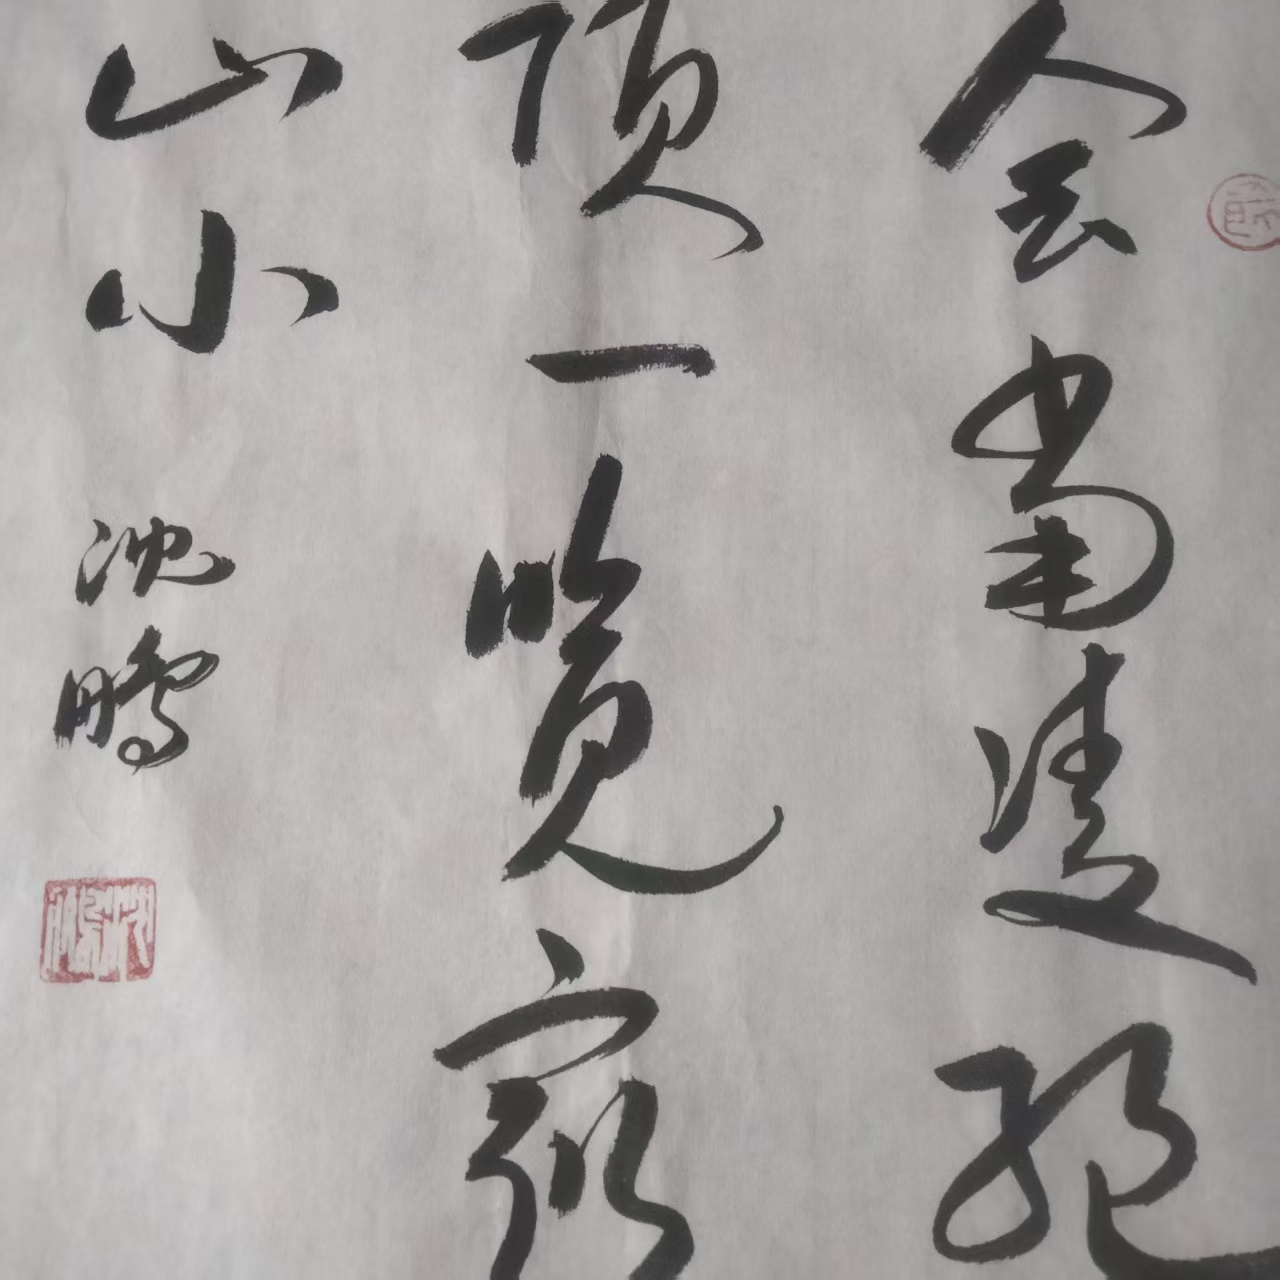 会当凌绝
顶一览众
山小
沈鹏